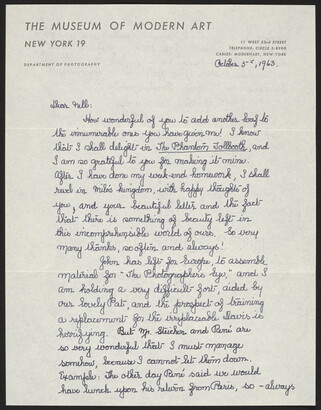 THE MUSEUM OF MODERN ART
NEW YORK 19
11 WEST 53rd STREET
TELEPHONE: CIRCLE 5-8900
CABLES: MODERNART, NEW-YORK
DEPARTMENT OF PHOTOGRAPHY
October 5th, 1963.
Dear Nell:
How wonderful of you to add another leaf to
the innumerable ones you have given me! I know
that I shall delight in The Phantom Tollbooth, and
I am so grateful to you for making it mine.
After I have done my week-end homework, I shall
revel in Milo's kingdom, with happy thoughts of
you, and your beautiful letter and the fact
that there is something of beauty left in
this incomprehensible world of ours. So very
many thanks, so often and always!
John has left for Europe to assemble
material for "The Photographer's Eye," and I
am holding a very difficult fort, aided by
our lovely Pat, and the prospect of training
a replacement for the irreplaceable Davis is
horrifying. But Mr. Steichen and René are
so very wonderful that I must manage
somehow, because I cannot let them down.
Example: The other day René said we would
have lunch upon his return from Paris, so - always